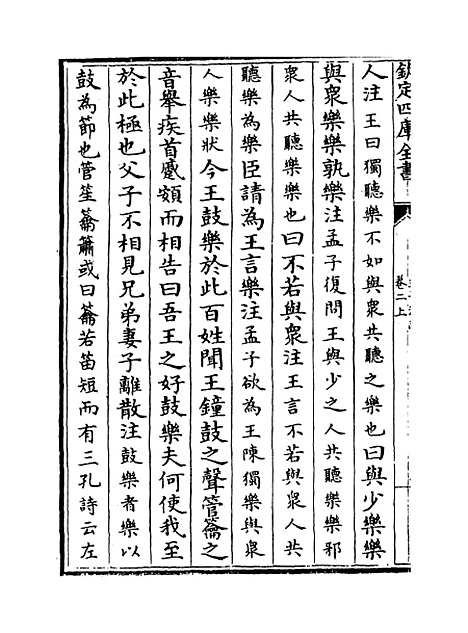 欽定四庫全書
卷二上
人注王曰獨聽樂不如與衆共聽之樂也曰與少樂樂
與衆樂樂孰樂注孟子復問王與少之人共聽樂樂邪
衆人共聽樂樂也曰不若與衆注王言不若與衆人共
聽樂為樂臣請為王言樂注孟子欲為王陳獨樂與衆
人樂樂狀今王鼓樂於此百姓聞王鐘鼓之聲管籥之
音舉疾首蹙頞而相告曰吾王之好鼓樂夫何使我至
於此極也父子不相見兄弟妻子離散注鼓樂者樂以
鼓為節也管笙籥簫或曰籥若笛短而有三孔詩云左